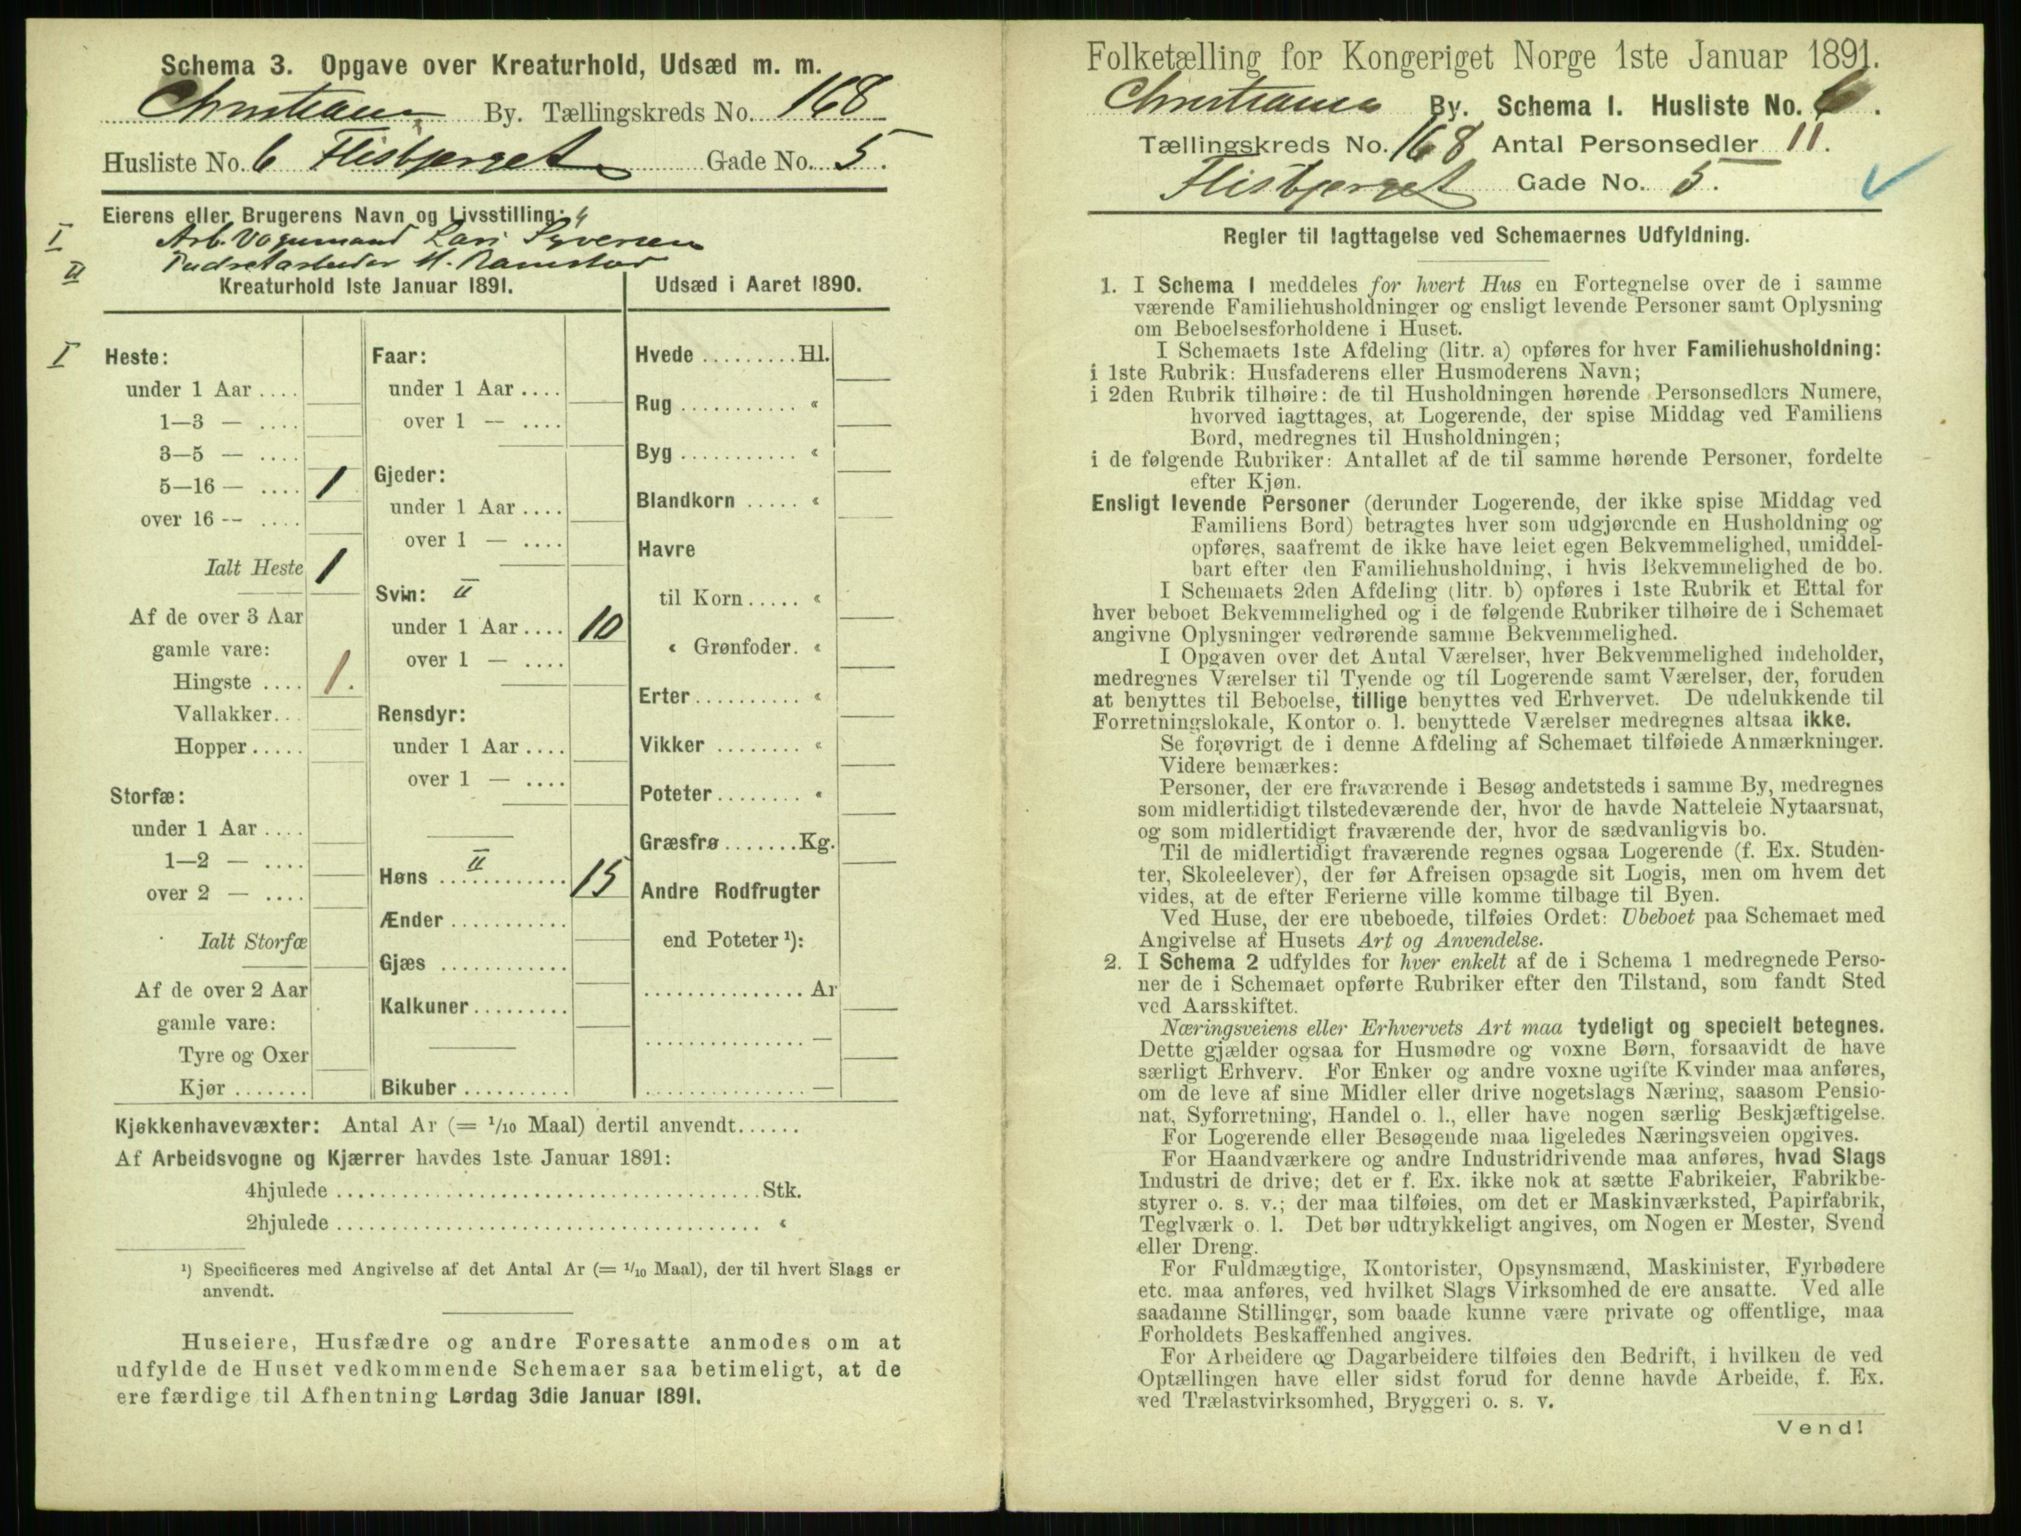 Schema 3. Opgave over Kreaturhold, Udsæd m. m.
Christiania By. Tællingskreds No. 168
Husliste No. 6 Flisbjerget Gade No. 5.
Eierens eller Brugerens Navn og Livsstilling:
I Arb. Vognmand Lars Syversen
II M. Ramstad
Kreaturhold 1ste Januar 1891.
I Heste:
under 1 Aar ....
1—3 — ....
3—5 — ....
5—16 — .... 1
over 16 -- ....
Ialt Heste 1
Af de over 3 Aar
gamle vare:
Hingste .... 1.
Vallakker...
Hopper.....
Storfæ:
under 1 Aar ....
1—2 — ....
over 2 — ....
Ialt Storfæ
Af de over 2 Aar
gamle vare:
Tyre og Oxer
Kjør.......
Faar:
under 1 Aar....
over 1 — ....
Gjeder:
under 1 Aar....
over 1 — ....
Svin: II
under 1 Aar.... 10
over 1 — ....
Rensdyr:
under 1 Aar....
over 1 — ....
II
Høns ............ 15
Ænder ...........
Gjæs ............
Kalkuner.........
Bikuber..........
Udsæd i Aaret 1890.
Hvede .........Hl.
Rug ........... «
Byg ........... «
Blandkorn ..... «
Havre
til Korn..... «
« Grønfoder. «
Erter.......... «
Vikker ........ «
Poteter........ «
Græsfrø.......Kg.
Andre Rodfrugter
end Poteter ¹):
............... Ar
............... —
............... —
Kjøkkenhavevæxter: Antal Ar (= 1/10 Maal) dertil anvendt......
Af Arbeidsvogne og Kjærrer havdes 1ste Januar 1891:
4hjulede ........................................Stk.
2hjulede ........................................ «
¹) Specificeres med Angivelse af det Antal Ar (= 1/10 Maal), der til hvert Slags er
anvendt.
Huseiere, Husfædre og andre Foresatte anmodes om at
udfylde de Huset vedkommende Schemaer saa betimeligt, at de
ere færdige til Afhentning Lørdag 3die Januar 1891.
Folketælling for Kongeriget Norge 1ste Januar 1891.
Christiania By. Schema I. Husliste No. 6.
Tællingskreds No. 168 Antal Personsedler 11.
Flisbjerget Gade No. 5.
Regler til Iagttagelse ved Schemaernes Udfyldning.
1. I Schema I meddeles for hvert Hus en Fortegnelse over de i samme
værende Familiehusholdninger og ensligt levende Personer samt Oplysning
om Beboelsesforholdene i Huset.
I Schemaets 1ste Afdeling (litr. a) opføres for hver Familiehusholdning:
i 1ste Rubrik: Husfaderens eller Husmoderens Navn;
i 2den Rubrik tilhøire: de til Husholdningen hørende Personsedlers Numere,
hvorved iagttages, at Logerende, der spise Middag ved Familiens
Bord, medregnes til Husholdningen;
i de følgende Rubriker: Antallet af de til samme hørende Personer, fordelte
efter Kjøn.
Ensligt levende Personer (derunder Logerende, der ikke spise Middag ved
Familiens Bord) betragtes hver som udgjørende en Husholdning og
opføres, saafremt de ikke have leiet egen Bekvemmelighed, umiddel-
bart efter den Familiehusholdning, i hvis Bekvemmelighed de bo.
I Schemaets 2den Afdeling (litr. b) opføres i 1ste Rubrik et Ettal for
hver beboet Bekvemmelighed og i de følgende Rubriker tilhøire de i Schemaet
angivne Oplysninger vedrørende samme Bekvemmelighed.
I Opgaven over det Antal Værelser, hver Bekvemmelighed indeholder,
medregnes Værelser til Tyende og til Logerende samt Værelser, der, foruden
at benyttes til Beboelse, tillige benyttes ved Erhvervet. De udelukkende til
Forretningslokale, Kontor o. l. benyttede Værelser medregnes altsaa ikke.
Se forøvrigt de i denne Afdeling af Schemaet tilføiede Anmærkninger.
Videre bemærkes:
Personer, der ere fraværende i Besøg andetsteds i samme By, medregnes
som midlertidigt tilstedeværende der, hvor de havde Natteleie Nytaarsnat,
og som midlertidigt fraværende der, hvor de sædvanligvis bo.
Til de midlertidigt fraværende regnes ogsaa Logerende (f. Ex. Studen-
ter, Skoleelever), der før Afreisen opsagde sit Logis, men om hvem det
vides, at de efter Ferierne ville komme tilbage til Byen.
Ved Huse, der ere ubeboede, tilføies Ordet: Ubeboet paa Schemaet med
Angivelse af Husets Art og Anvendelse.
2. I Schema 2 udfyldes for hver enkelt af de i Schema 1 medregnede Perso-
ner de i Schemaet opførte Rubriker efter den Tilstand, som fandt Sted
ved Aarsskiftet.
Næringsveiens eller Erhvervets Art maa tydeligt og specielt betegnes.
Dette gjælder ogsaa for Husmødre og voxne Børn, forsaavidt de have
særligt Erhverv. For Enker og andre voxne ugifte Kvinder maa anføres,
om de leve af sine Midler eller drive nogetslags Næring, saasom Pensio-
nat, Syforretning, Handel o. l., eller have nogen særlig Beskjæftigelse.
For Logerende eller Besøgende maa ligeledes Næringsveien opgives.
For Haandværkere og andre Industridrivende maa anføres, hvad Slags
Industri de drive; det er f. Ex. ikke nok at sætte Fabrikeier, Fabrikbe-
styrer o. s. v.; der maa tilføies, om det er Maskinværksted, Papirfabrik,
Teglværk o. l. Det bør udtrykkeligt angives, om Nogen er Mester, Svend
eller Dreng.
For Fuldmægtige, Kontorister, Opsynsmænd, Maskinister, Fyrbødere
etc. maa anføres, ved hvilket Slags Virksomhed de ere ansatte. Ved alle
saadanne Stillinger, som baade kunne være private og offentlige, maa
Forholdets Beskaffenhed angives.
For Arbeidere og Dagarbeidere tilføies den Bedrift, i hvilken de ved
Optællingen have eller sidst forud for denne havde Arbeide, f. Ex.
ved Trælastvirksomhed, Bryggeri o. s. v.
Vend!